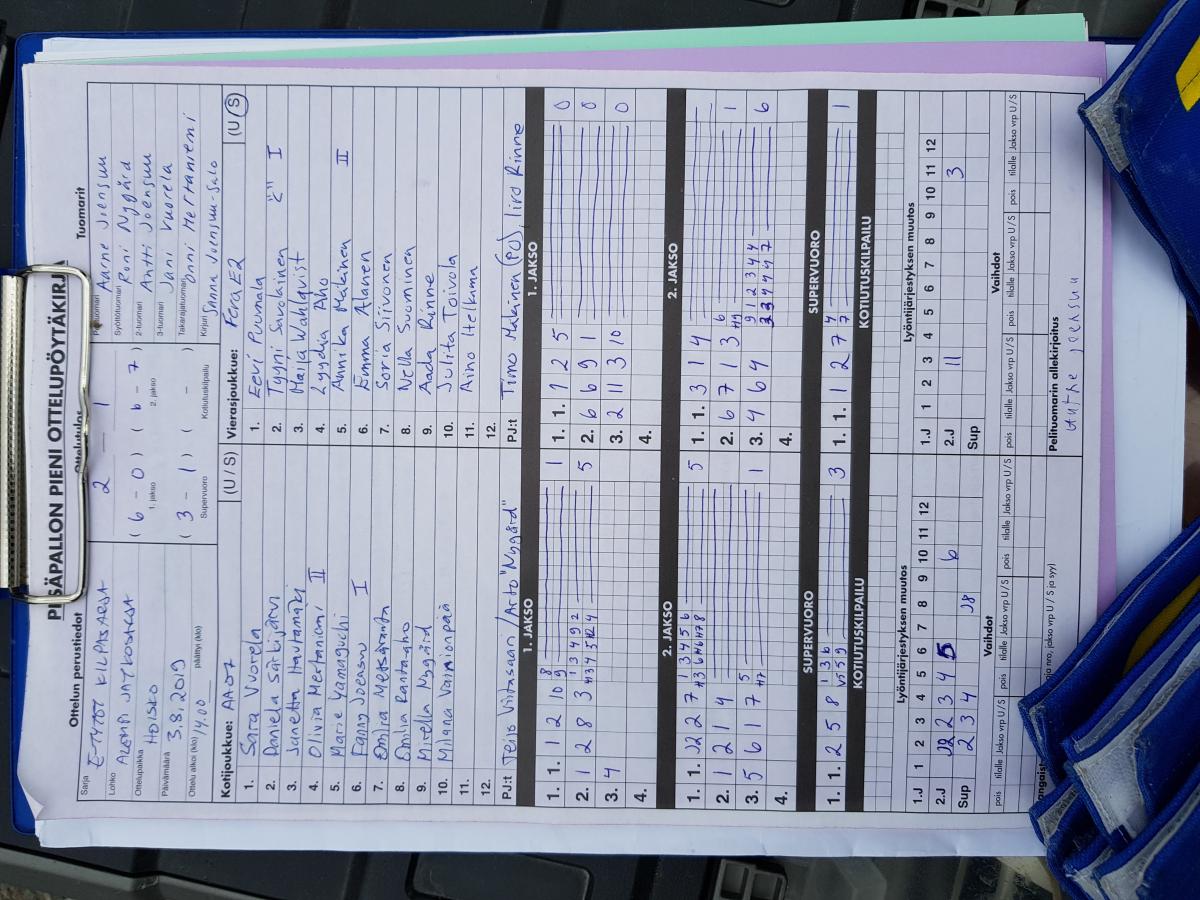 PESÄPALLON PIENI OTTELUPÖYTÄKIRJA
Ottelun perustiedot
Sarja E-TYTÖT KILPASARJA
Lohko ALEMPI JATKOSARJA
Ottelupaikka HOISKO
Päivämäärä 3.8.2019
Ottelu alkoi (klo) 14.00 päättyi (klo)
Ottelutulos
2 — 1
( 6 - 0 ) ( 6 - 7 )
1. jakso 2. jakso
( 3 - 1 ) ( - )
Supervuoro Kotiutuskilpailu
Tuomarit
Pelituomari Aarne Joensuu
Syöttötuomari Roni Nygård
2-tuomari Antti Joensuu
3-tuomari Jani Vuorela
Takarajatuomari Onni Metsäniemi
Kirjuri Sanna Joensuu-Salo
Kotijoukkue: AA-07 (U / S)
1. Sara Vuorela
2. Daniela Särkijärvi
3. Janetta Hautamäki
4. Olivia Metsäniemi II
5. Marie Kamaguchi
6. Fanny Joensuu I
7. Emilia Metsäranta
8. Emilia Rantaaho
9. Mirella Nygård
10. Milanna Vainionpää
11.
12.
PJ:t Teijo Viitasaari / Arto "Nygård"
Vierasjoukkue: Fera E2 (U / S)
1. Eevi Puumala
2. Tyyni Savolainen "C" I
3. Maija Wahlqvist
4. Lyydia Aho
5. Annika Mäkinen II
6. Emma Alanen
7. Sonja Siivonen
8. Nella Suominen
9. Aada Rinne
10. Julita Toivola
11. Aino Helkama
12.
PJ:t Timo Mäkinen (PJ), Iiro Rinne
1. JAKSO 1. JAKSO
1. 1. 1 2 10 1
2. 1 2 8 3 5
3. 4
4.
1. 1. 1 2 5 0
2. 6 6 9 1 0
3. 2 11 3 10 0
4.
2. JAKSO 2. JAKSO
1. 1. J2 2 7 5
2. 1 2 1 4
3. 5 6 1 7 1
4.
1. 1. 3 1 4
2. 6 7 1 3 1
3. 4 6 4 6
4.
SUPERVUORO SUPERVUORO
1. 1. 2 5 8 3
1. 1. 1 2 7 1
KOTIUTUSKILPAILU KOTIUTUSKILPAILU
Lyöntijärjestyksen muutos
1.J 1 2 3 4 5 6 7 8 9 10 11 12
2.J J2 2 3 4 5 6
Sup 2 3 4 J8
Vaihdot
pois tilalle Jakso vrp U / S pois tilalle Jakso vrp U / S pois tilalle Jakso vrp U / S
Lyöntijärjestyksen muutos
1.J 1 2 3 4 5 6 7 8 9 10 11 12
2.J 11 3
Sup
Vaihdot
pois tilalle Jakso vrp U / S pois tilalle Jakso vrp U / S pois tilalle Jakso vrp U / S
Pelituomarin allekirjoitus